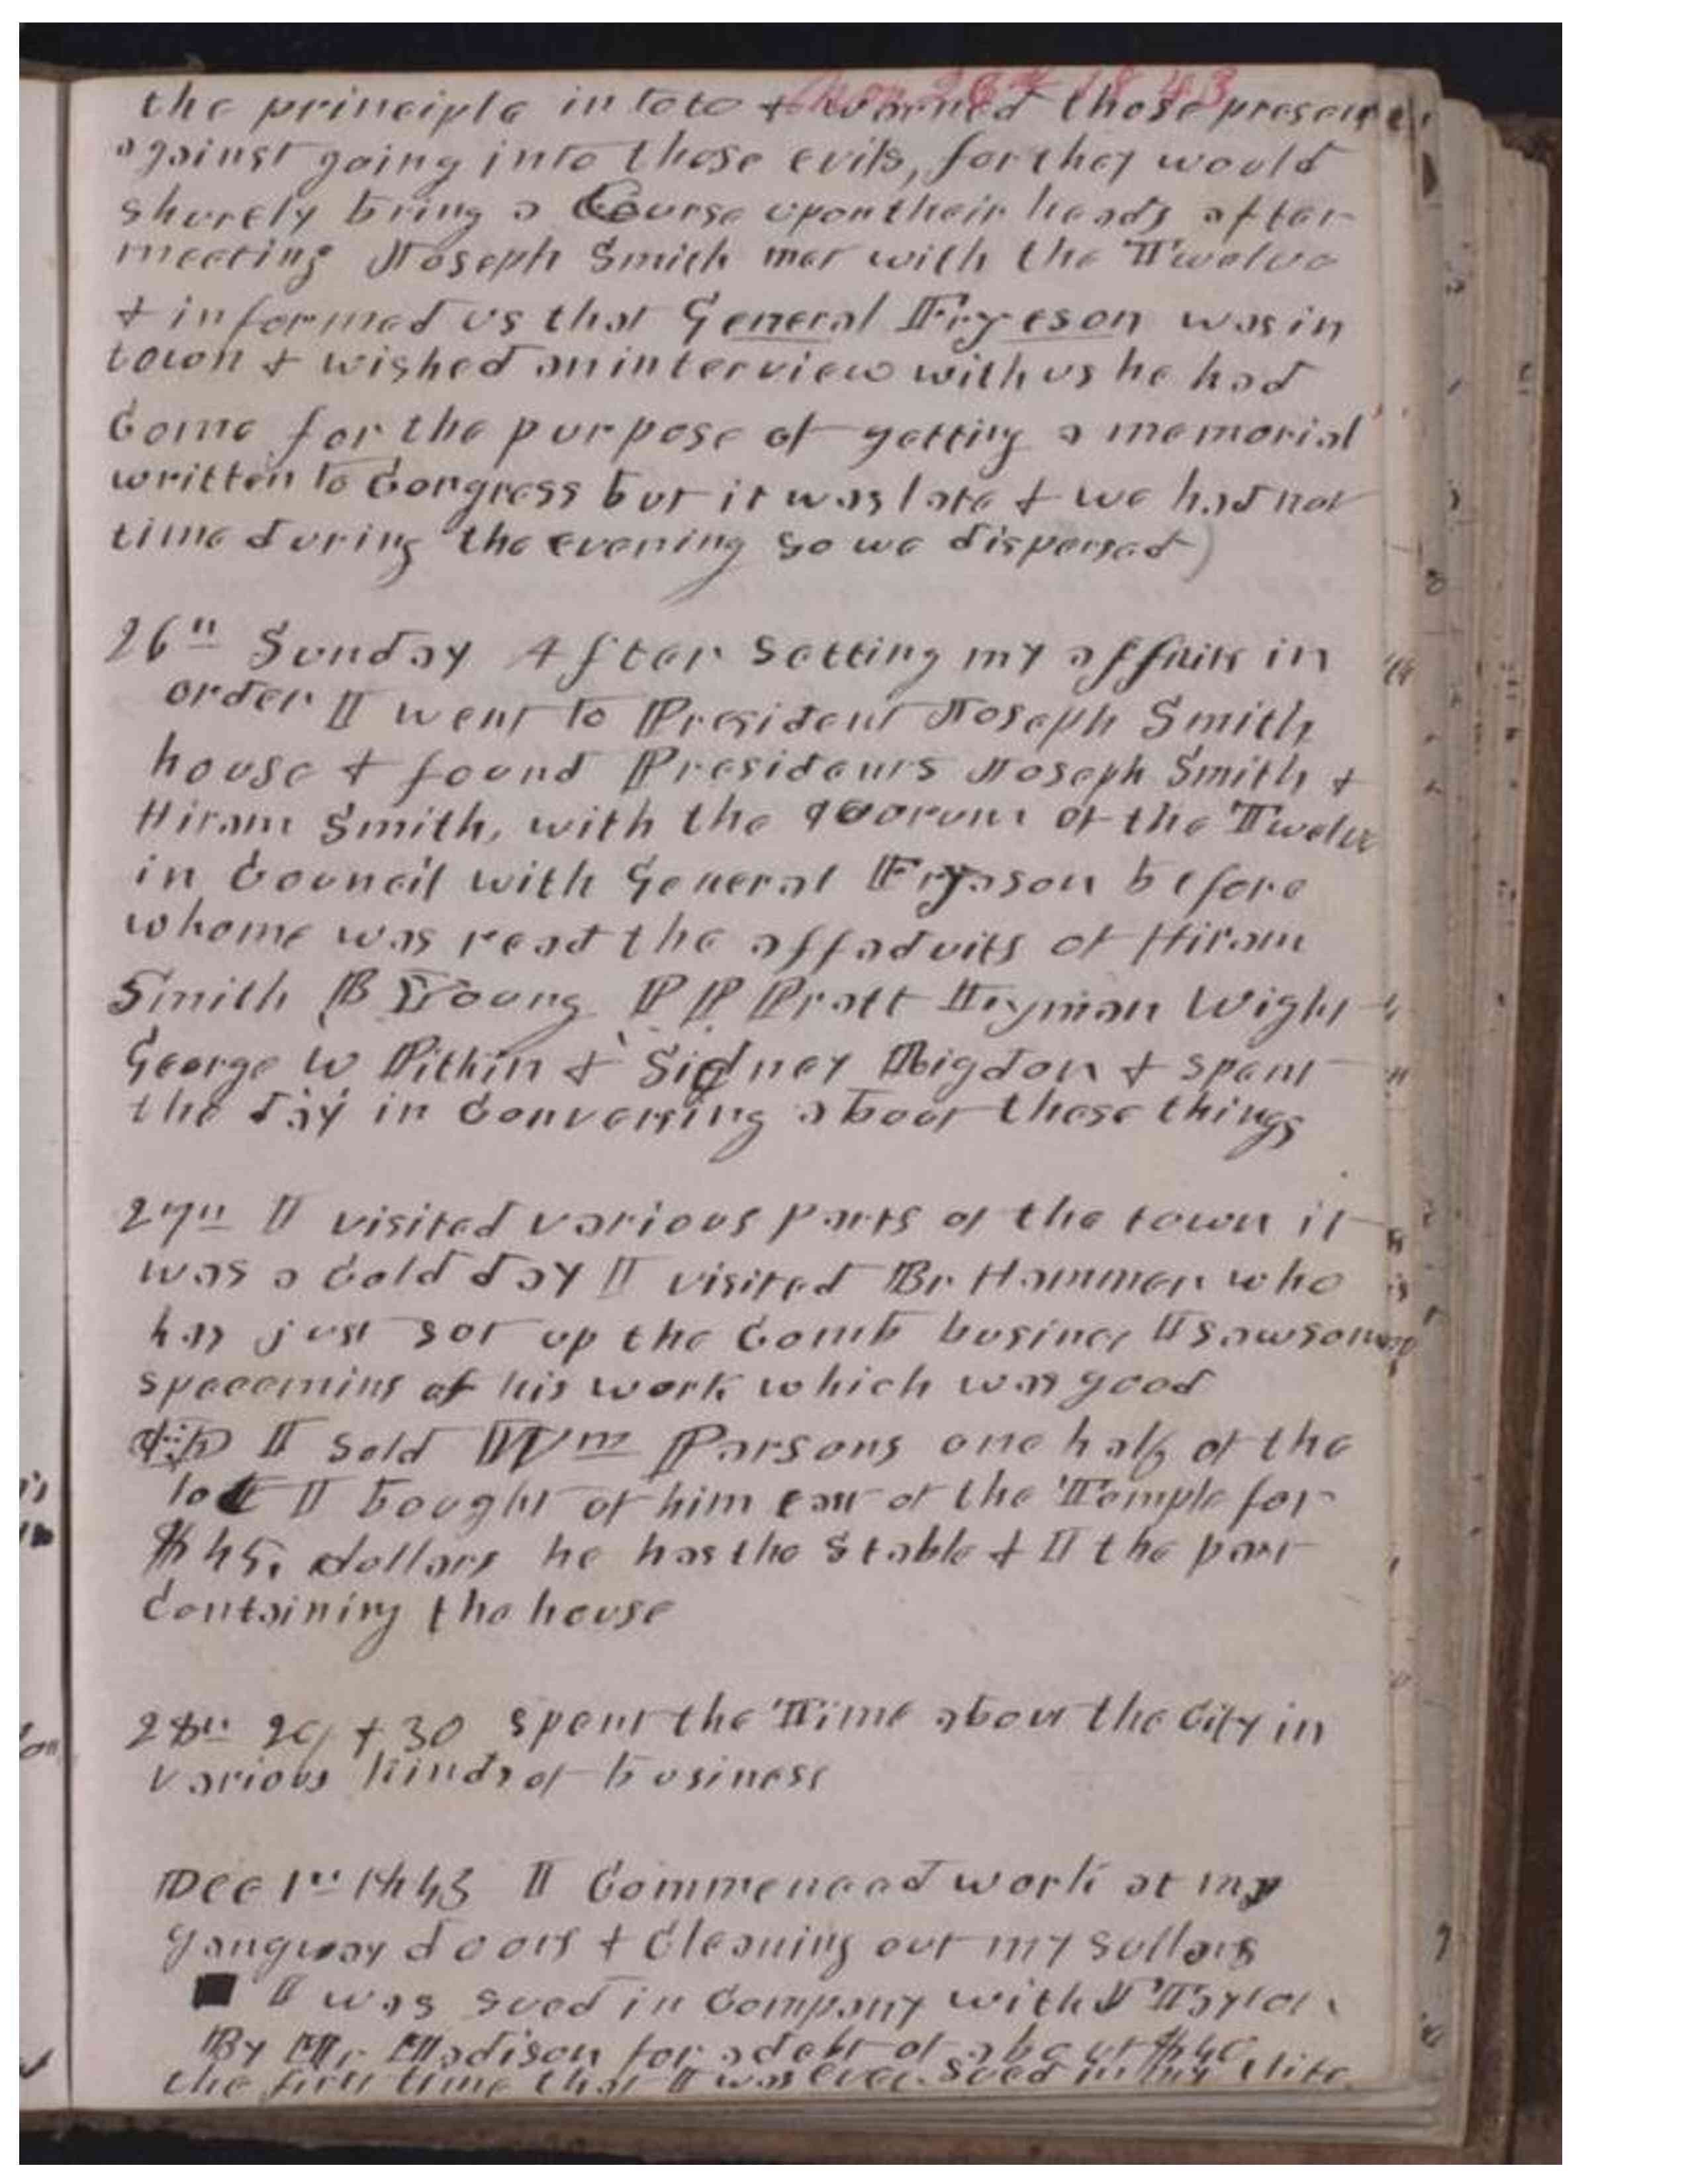 Nov 26th 1843
the principle in toto & warned those present
against going into those evils, for they would
shurely bring a Course upon their heads after
meeting Joseph Smith met with the Twelve
& informed us that General Fryeson was in
town & wished an interview with us he had
Come for the purpose of getting a memorial
written to Congress but it was late & we had not
time during the evening so we dispersed)
26th Sunday After setting my affairs in
order I went to President Joseph Smith
house & found Presidents Joseph Smith &
Hiram Smith, with the quorum of the Twelve
in Council with General Fryason before
whome was read the affadvits of Hiram
Smith B Young P P Pratt Lyman Wight
George W Pitkin & Sidney Rigdon & spent
the day in Conversing about these things
27th I visited various parts of the town it
was a Cold day I visited Br Hammer who
has just sot up the Comb busines I saw some
specemins of his work which was good
I sold Wm Parsons one half of the
lot I bought of him east of the Temple for
$45, dollars he has the Stable & I the part
Containing the house
28th 29 & 30 spent the Time about the City in
various kinds of business
Dec 1st 1843 I Commenced work at my
gangway doors & Cleaning out my sullars
I was sued in Company with J Taylor
By Mr Madison for a debt of about $40
the first time that I was ever sued in my life